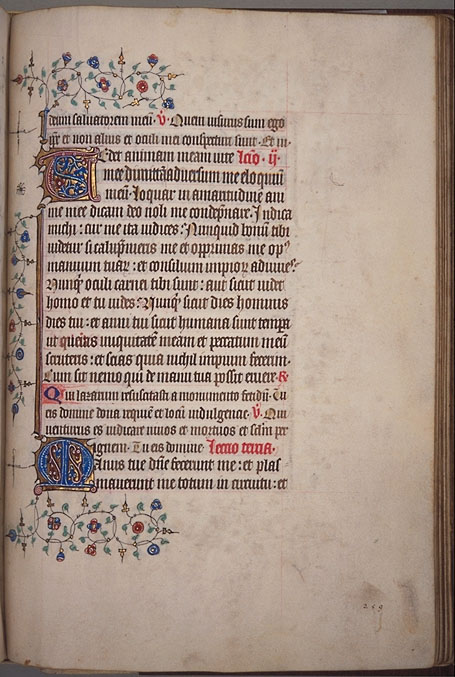 deum saluatorem meū. V. Quem uisurus sum ego
ip̄e et non alius et oculi mei conspecturi sunt. Et in.
Tedet animam meam uite lc̄io. ij.
mee dimittā aduersum me eloquiū
meū. loquar in amaritudine ani
me mee dicam deo noli me condepnare. Indica
michi: cur me ita iudices. Nunquid bonū tibi
uidetur si calūpnieris me et opprimas me op᾿
manuum tuaꝝ: et consilium impioꝝ adiuues.
Nunq̄ oculi carnei tibi sunt: aut sicut uidet
homo et tu uides: Nunq̄ sicut dies hominis
dies tui: et anni tui sicut humana sunt tempa
ut queras iniquitatē meam et peccatum meū
scruteris: et scias quia nichil impium fecerim.
Cum sit nemo qui de manu tua possit eruere. R.
Qui lazarum resuscitasti a monumento fetidū. Tu
eis domine dona requiē et locū indulgencie. V. Qui
uenturus es iudicare uiuos et mortuos et sclm per
ignem. Tu eis domine. Lectio tercia.
Manus tue dn̄e fecerunt me: et plas
mauerunt me totum in circuitu: et
269